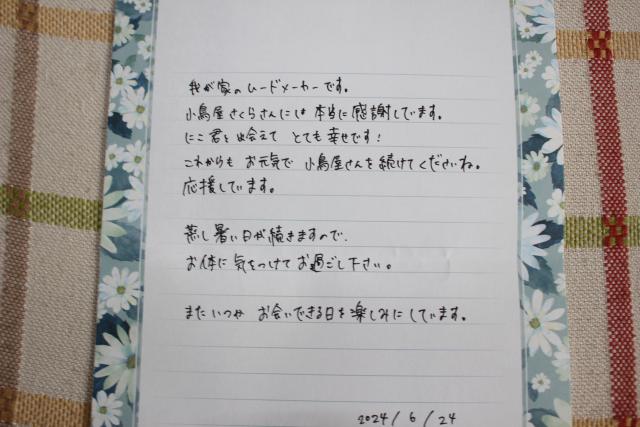 我が家のムードメーカーです。
小鳥屋さくらさんには本当に感謝しています。
にこ君と出会えて とても幸せです!
これからも お元気で 小鳥屋さんを続けてくださいね。
応援しています。
蒸し暑い日が続きますので、
お体に気をつけてお過ごし下さい。
またいつか お会いできる日を楽しみにしています。
2024/6/24